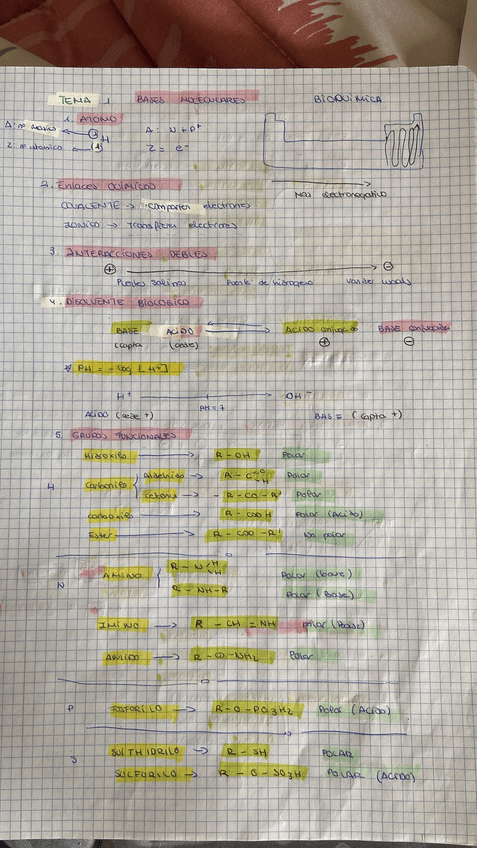 TEMA 1 BASES MOLECULARES BIOQUÍMICA
1. ATOMO
A: nº másico H A: N + P⁺
Z: nº atomico Z = e⁻
Más electronegativo
2. Enlaces QUÍMICOS
COVALENTE → comparten electrones
IONICO → Transfieren electrones
3. INTERACCIONES DÉBILES
⊕ → ⊖
Puentes salinos Puente de hidrogeno Van der Waals
4. DISOLVENTE BIOLOGICO
BASE ACIDO ACIDO conjugado BASE conjugada
(capta) (cede) ⊕ ⊖
PH = - log [H⁺]
H⁺ OH⁻
ACIDO (cede +) PH = 7 BASE (capta +)
5. GRUPOS FUNCIONALES
Hidroxilo → R - OH Polar
Carbonilo Aldehido → R - C =O - H Polar
H Cetona → R - CO - R' Polar
Carboxilo → R - COOH Polar (Acido)
Ester → R - COO - R' No polar
AMINO R - N H H Polar (base)
N R - NH - R Polar (Base)
IMINO → R - CH = NH polar (Base)
AMIDO → R - CO - NH₂ Polar
P FOSFORILO → R - O - PO₃H₂ Polar (Acido)
SULFHIDRILO → R - SH POLAR
S SULFURILO → R - O - SO₃H POLAR (ACIDO)